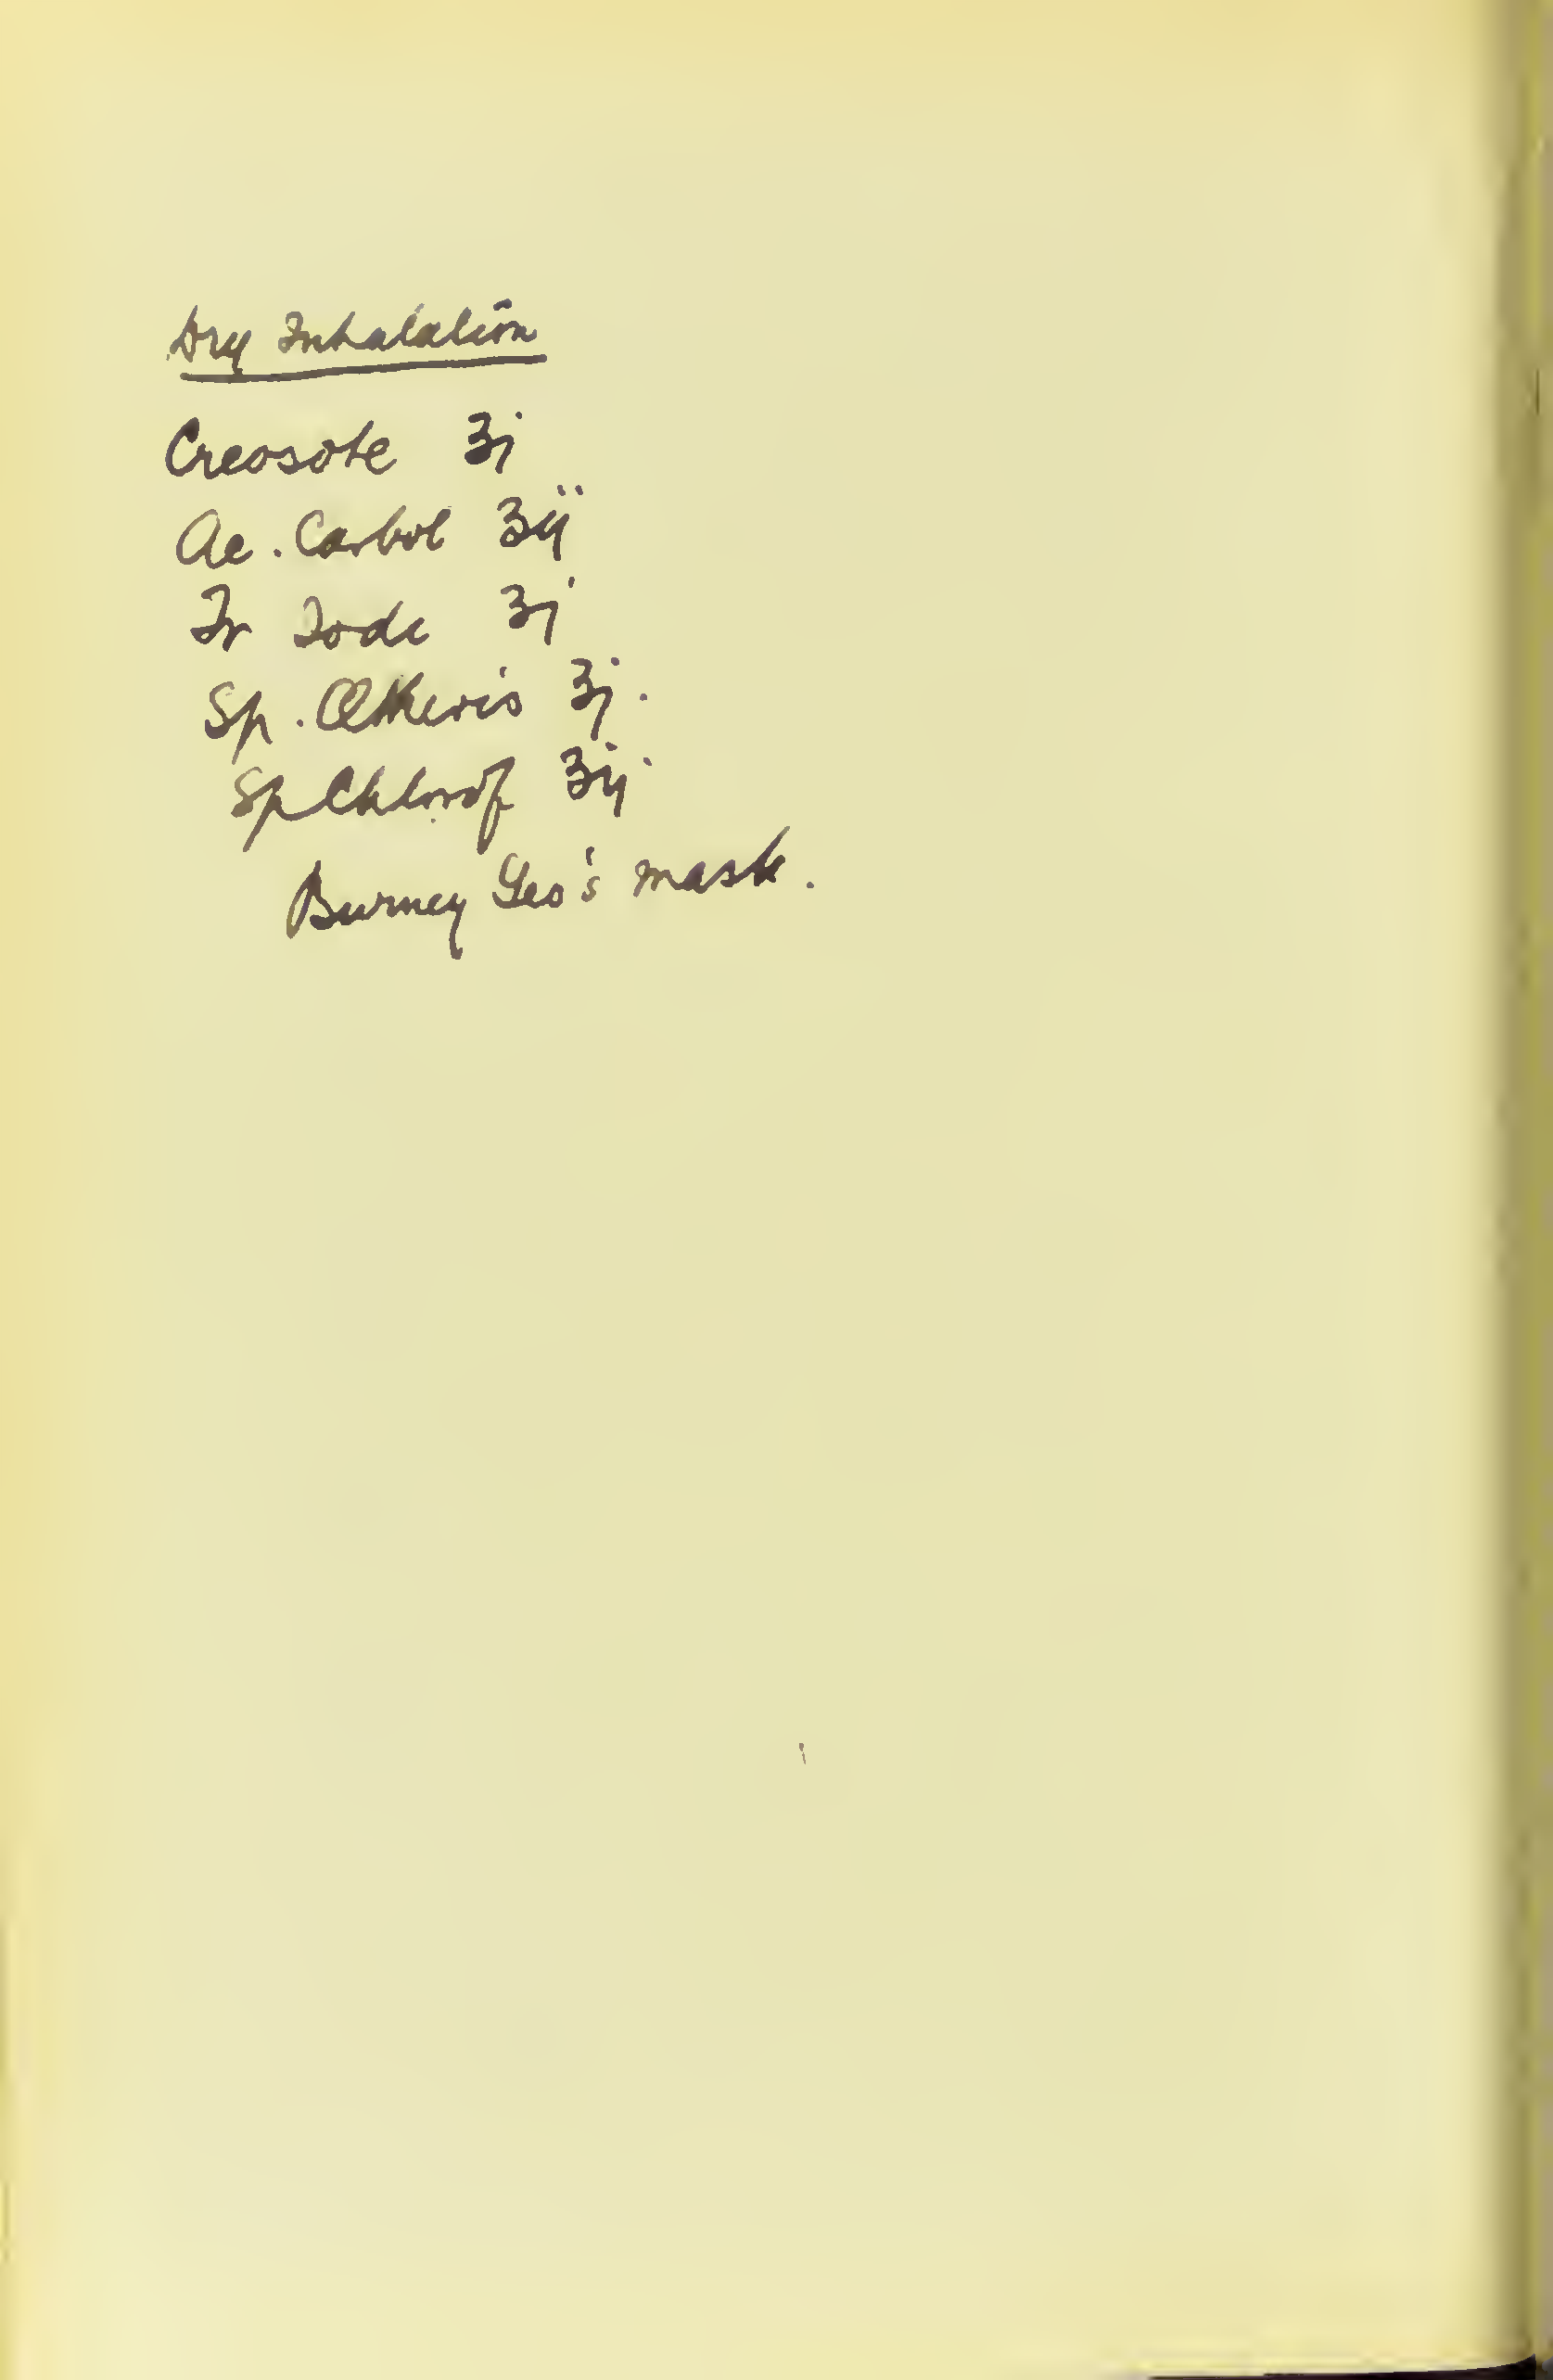 Dry Inhalation
Creosote ʒj
Ac. Carbol ʒij
Tr Iodi ʒj
Sp. Ætheris ʒj.
Sp Chlorof ʒij.
Burney Yeo's mask.